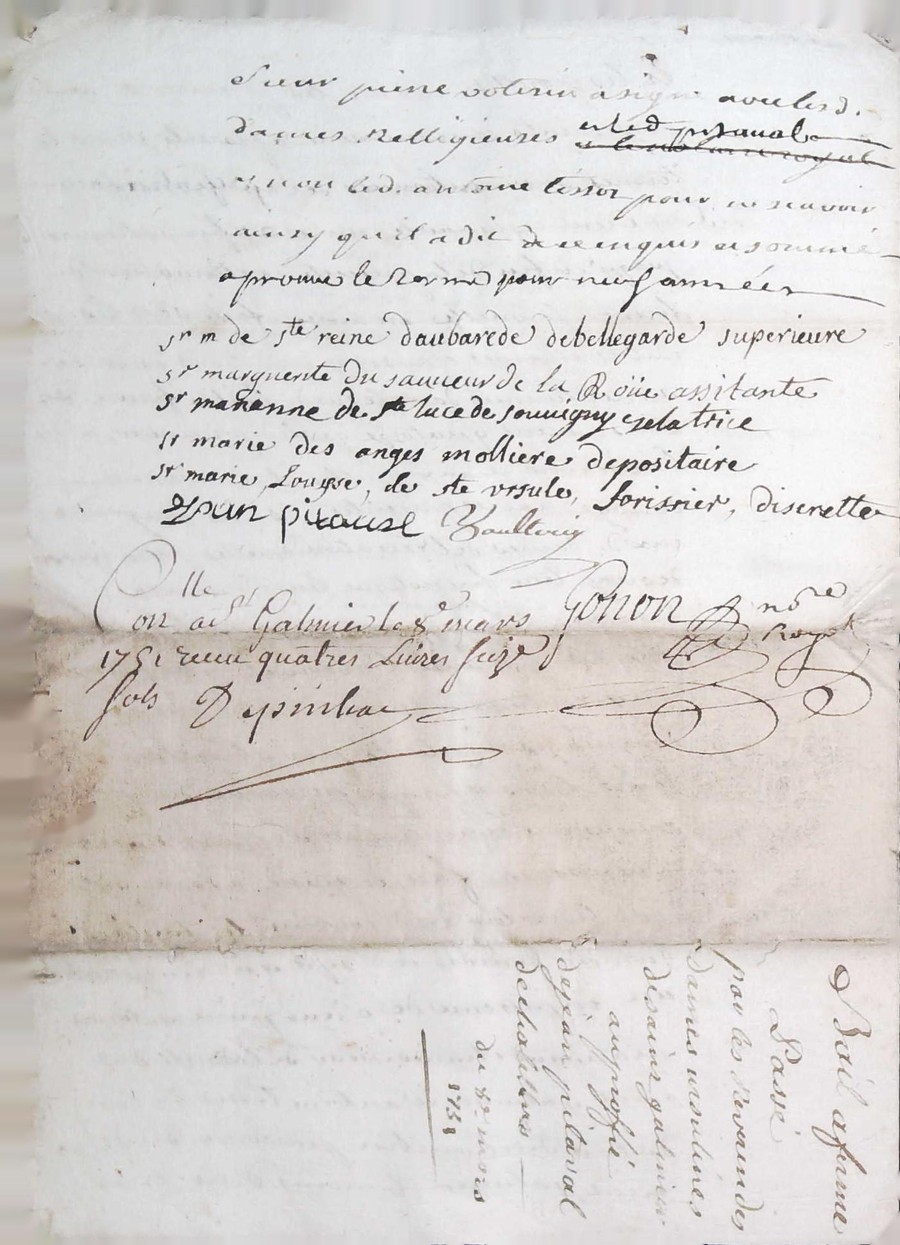 Sieur pierre voterin a signé avec lesd.
dames Relligieuses et led pitaval
et non led. antoine tissot pour ne scavoir
ainsy qu'il a dit de ce enquis et sommé
aprouvé le Terme pour neuf années
sr m de ste reine daubarede debellegarde superieure
sr marguerite du sauveur de la Roüe assitante
sr marianne de ste luce de souvigny zelatrice
sr marie des anges molliere depositaire
sr marie, Louyse, de ste ursule, forissier, discrette
jean pitaual
Collé
Con a st Galmier le 8e mars
1751 receu quatres Livres seize
sols Depinhac
Gonon nore
Royal
Bail a ferme
Passé
par les Reverandes
dames ursulines
de saint galmier
au proffit
de jean pitaval
de chatelus
du 8e mars
1751